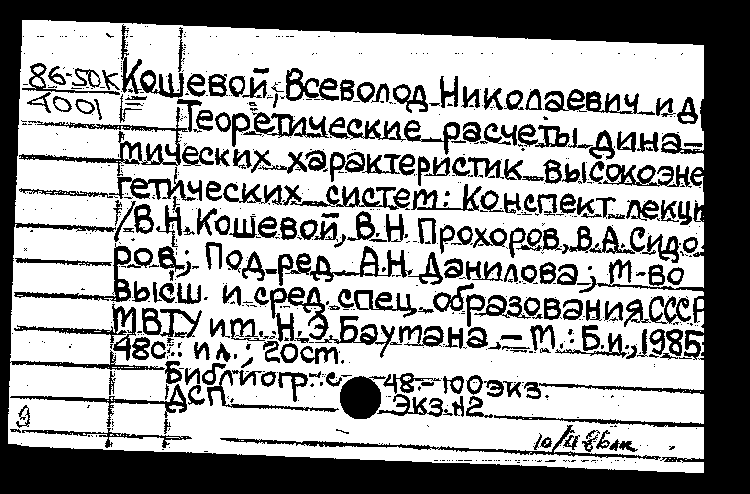 86-50К Кошевой, Всеволод Николаевич и д
4001
Теоретические расчеты дина-
тических характеристик высокоэне
гетических систем: Конспект лекц
/В.Н. Кошевой, В.Н. Прохоров, В.А. Сидо-
ров; Под ред. А.Н. Данилова; М-во
высш. и сред. спец. образования СССР
МВТУ им. Н.Э. Баумана. – М.: Б.и., 1985
48с.: ил.; 20см.
Библиогр.: с. 48. – 100экз.
ДСП. Экз. №2